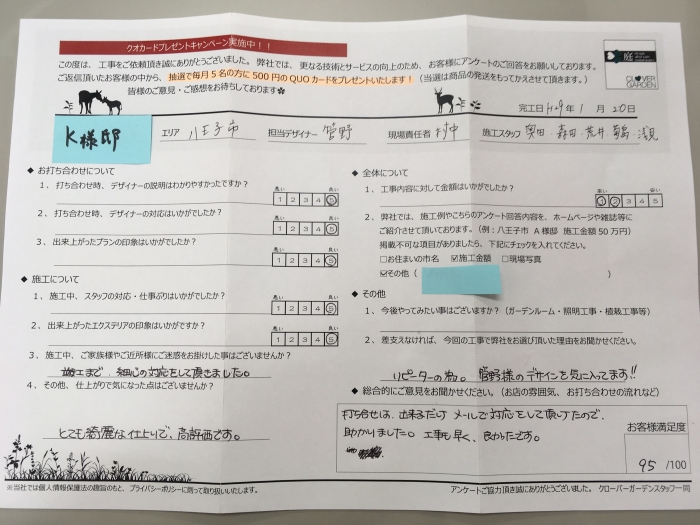 クオカードプレゼントキャンペーン実施中！！
この度は、工事をご依頼頂き誠にありがとうございました。弊社では、更なる技術とサービスの向上のため、お客様にアンケートのご回答をお願いしております。
ご返信頂いたお客様の中から、抽選で毎月５名の方に 500 円の QUO カードをプレゼントいたします！（当選は商品の発送をもってかえさせて頂きます。）
皆様のご意見・ご感想をお待ちしております✿
庭
CLOVER
GARDEN
完工日 H29年 1 月 20日
K様邸
エリア 八王子市 担当デザイナー 菅野 現場責任者 村中 施工スタッフ 奥田・森田・荒井・・浅見
◆ お打ち合わせについて
１．打ち合わせ時、デザイナーの説明はわかりやすかったですか？
悪い 良い
1 2 3 4 5
２．打ち合わせ時、デザイナーの対応はいかがでしたか？
悪い 良い
1 2 3 4 5
３．出来上がったプランの印象はいかがでしたか？
悪い 良い
1 2 3 4 5
◆ 施工について
１．施工中、スタッフの対応・仕事ぶりはいかがでしたか？
悪い 良い
1 2 3 4 5
２．出来上がったエクステリアの印象はいかがですか？
悪い 良い
1 2 3 4 5
３．施工中、ご家族様やご近所様にご迷惑をお掛けした事はございませんか？
施工まで 細心の対応をして頂きました。
４．その他、仕上がりで気になった点はございませんか？
とても綺麗な仕上りで、高評価です。
◆ 全体について
１．工事内容に対して金額はいかがでしたか？
高い 安い
1 2 3 4 5
２．弊社では、施工例やこちらのアンケート回答内容を、ホームページや雑誌等に
ご紹介させて頂しております。（例：八王子市 A 様邸 施工金額 50 万円）
掲載不可な項目がありましたら、下記にチェックを入れてください。
□お住まいの市名 ☑施工金額 □現場写真
☑その他（ ）
◆ その他
１．今後やってみたい事はございますか？（ガーデンルーム・照明工事・植栽工事等）
２．差支えなければ、今回の工事で弊社をお選び頂いた理由をお聞かせください。
リピーターの為。菅野様のデザインを気に入ってます!!
◆ 総合的にご意見をお聞かせください。（お店の雰囲気、お打ち合わせの流れなど）
打ち合せは、出来るだけ メールで対応をして頂けたので、
助かりました。工事も早く、良かったです。
お客様満足度
95 /100
※当社では個人情報保護法の趣旨のもと、プライバシーポリシーに則って取り扱いいたします。
アンケートご協力頂き誠にありがとうございました。 クローバーガーデンスタッフ一同